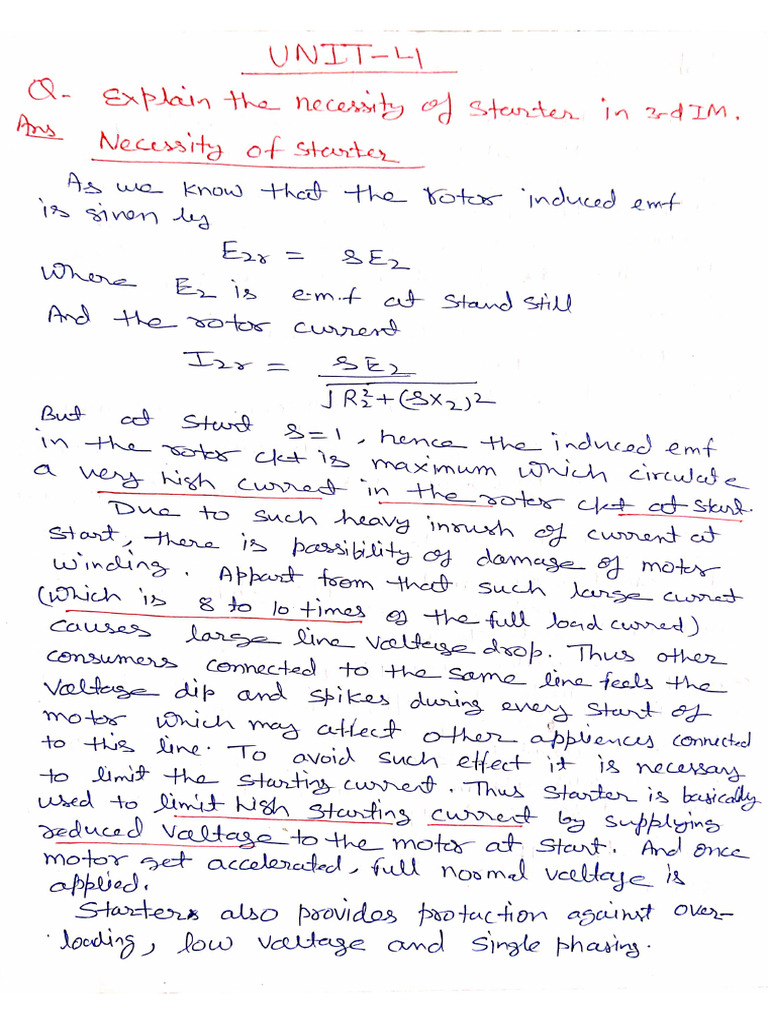 UNIT-4
Q- Explain the necessity of Starter in 3-ϕ IM.
Ans Necessity of Starter
As we know that the rotor induced emf
is given by
E2r = SE2
Where E2 is e.m.f at stand still
And the rotor current
I2r = SE2 / √R2² + (SX2)²
But at start S=1, hence the induced emf
in the rotor ckt is maximum which circulate
a very high current in the rotor ckt at start.
Due to such heavy inrush of current at
start, there is possibility of damage of motor
winding. Appart from that such large curret
(which is 8 to 10 times of the full load curred)
causes large line voltage drop. Thus other
consumers connected to the same line feels the
voltage dip and spikes during every start of
motor which may affect other appliences connected
to this line. To avoid such effect it is necessary
to limit the starting current. Thus starter is basically
used to limit high starting current by supplying
reduced voltage to the motor at start. And once
motor get accelerated, full normal voltage is
applied.
Starters also provides protuction against over-
loading, low voltage and single phasing.